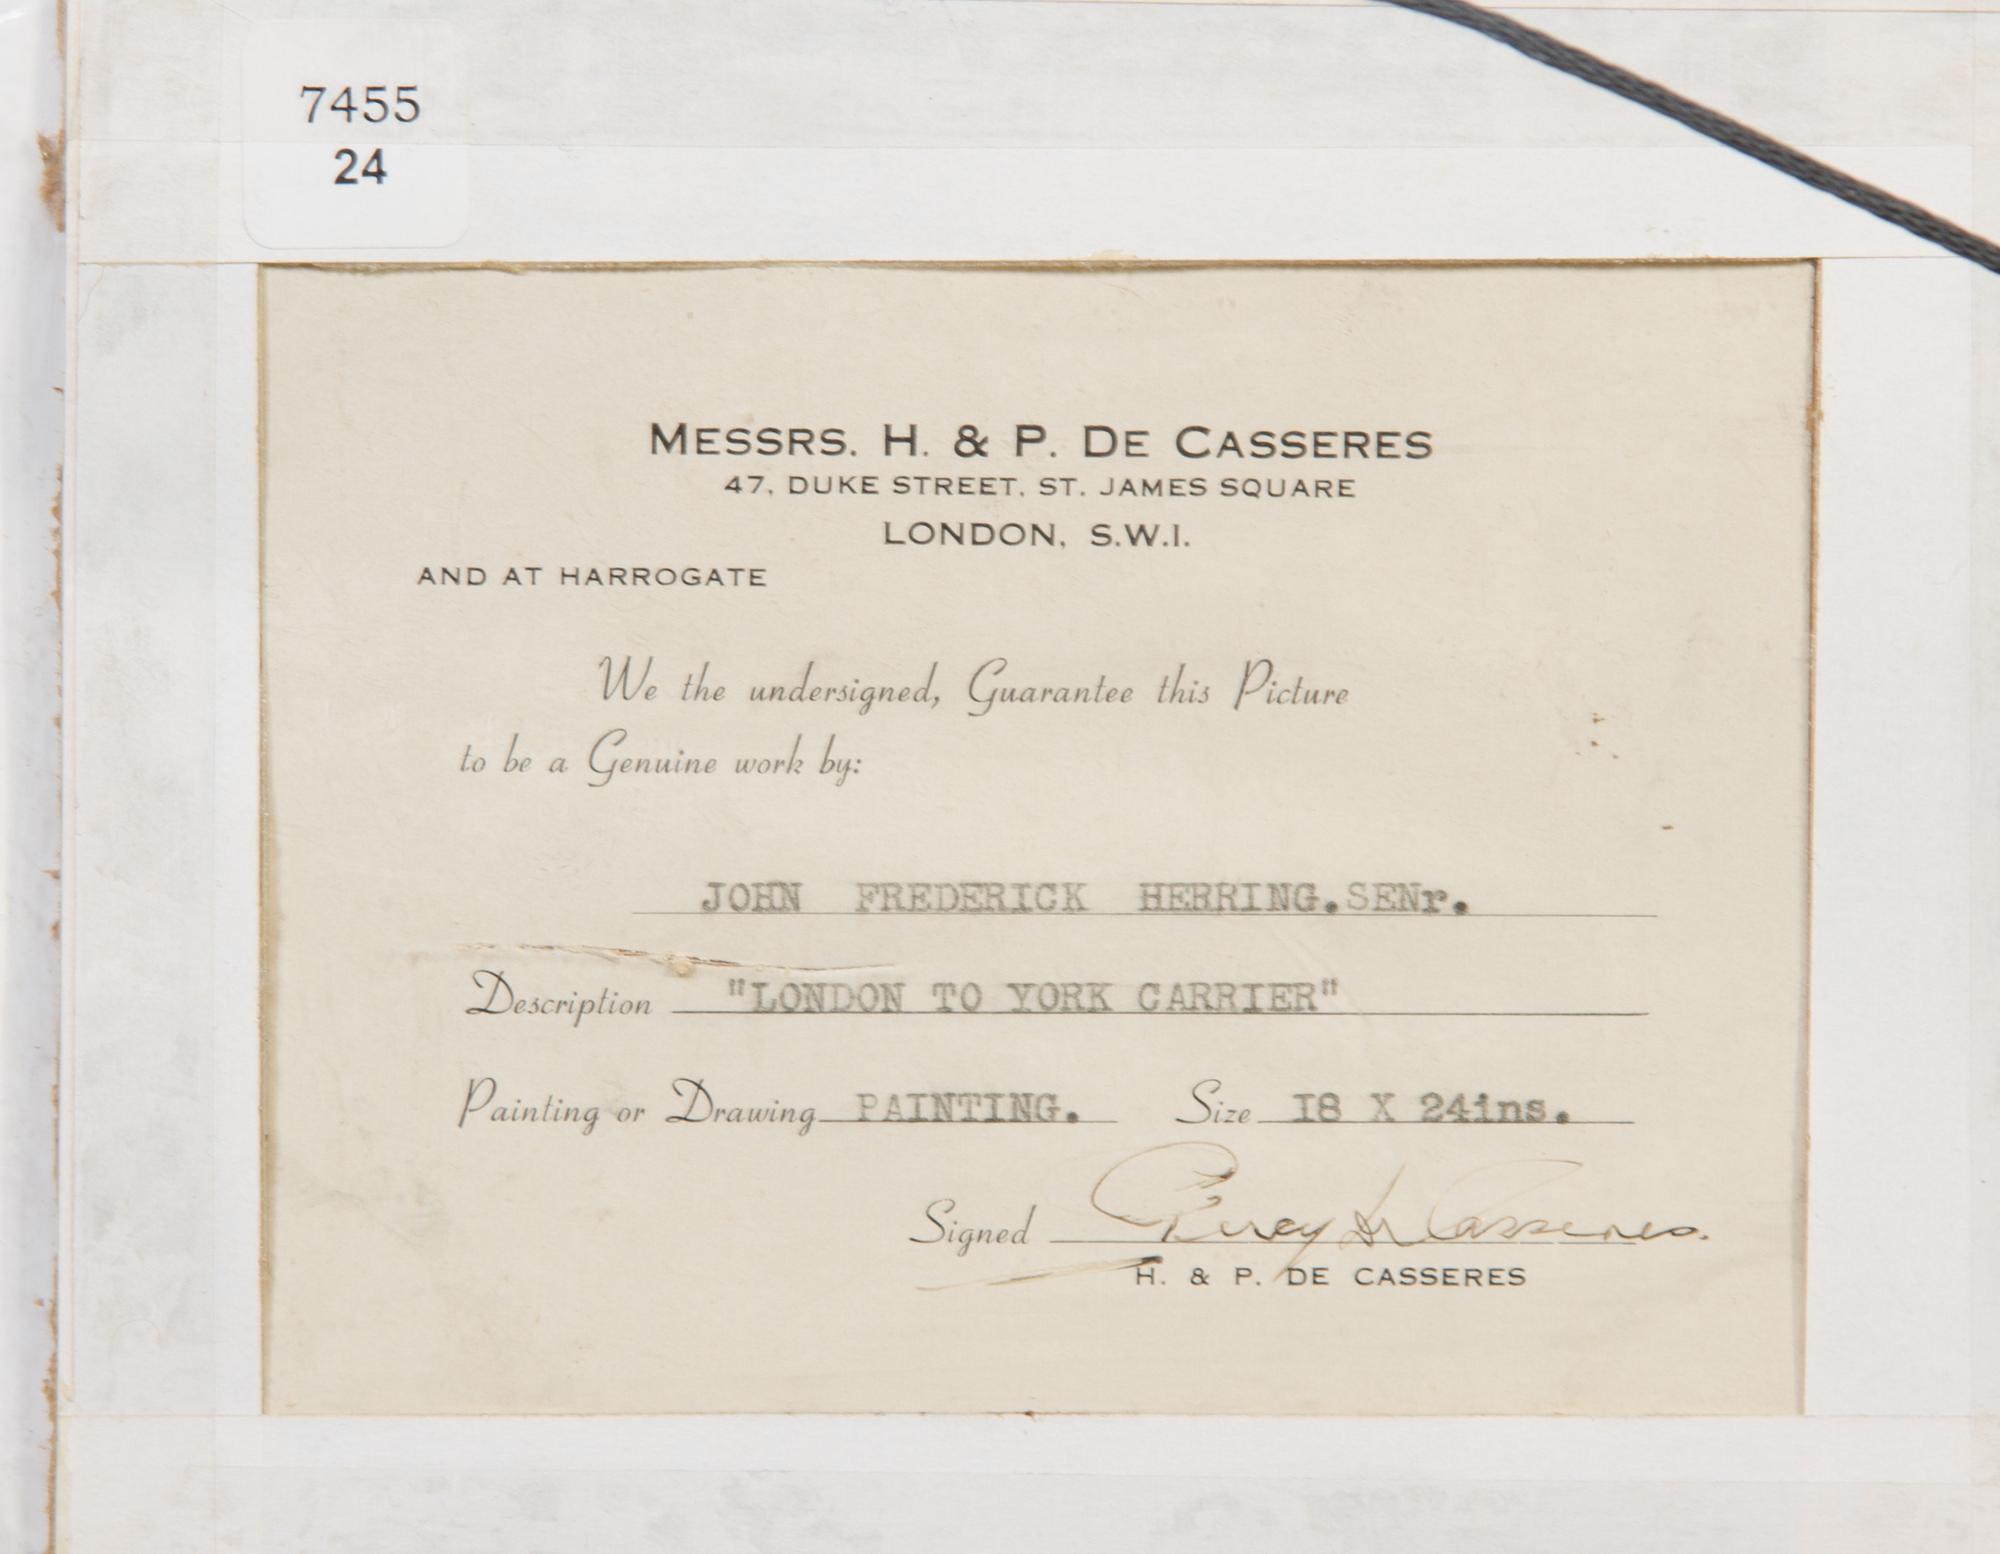 7455
24
MESSRS. H. & P. DE CASSERES
47, DUKE STREET, ST. JAMES SQUARE
LONDON, S.W.1.
AND AT HARROGATE
We the undersigned, Guarantee this Picture
to be a Genuine work by:
JOHN FREDERICK HERRING.SENr.
Description "LONDON TO YORK CARRIER"
Painting or Drawing PAINTING. Size I8 X 24ins.
Signed Percy de Casseres.
H. & P. DE CASSERES